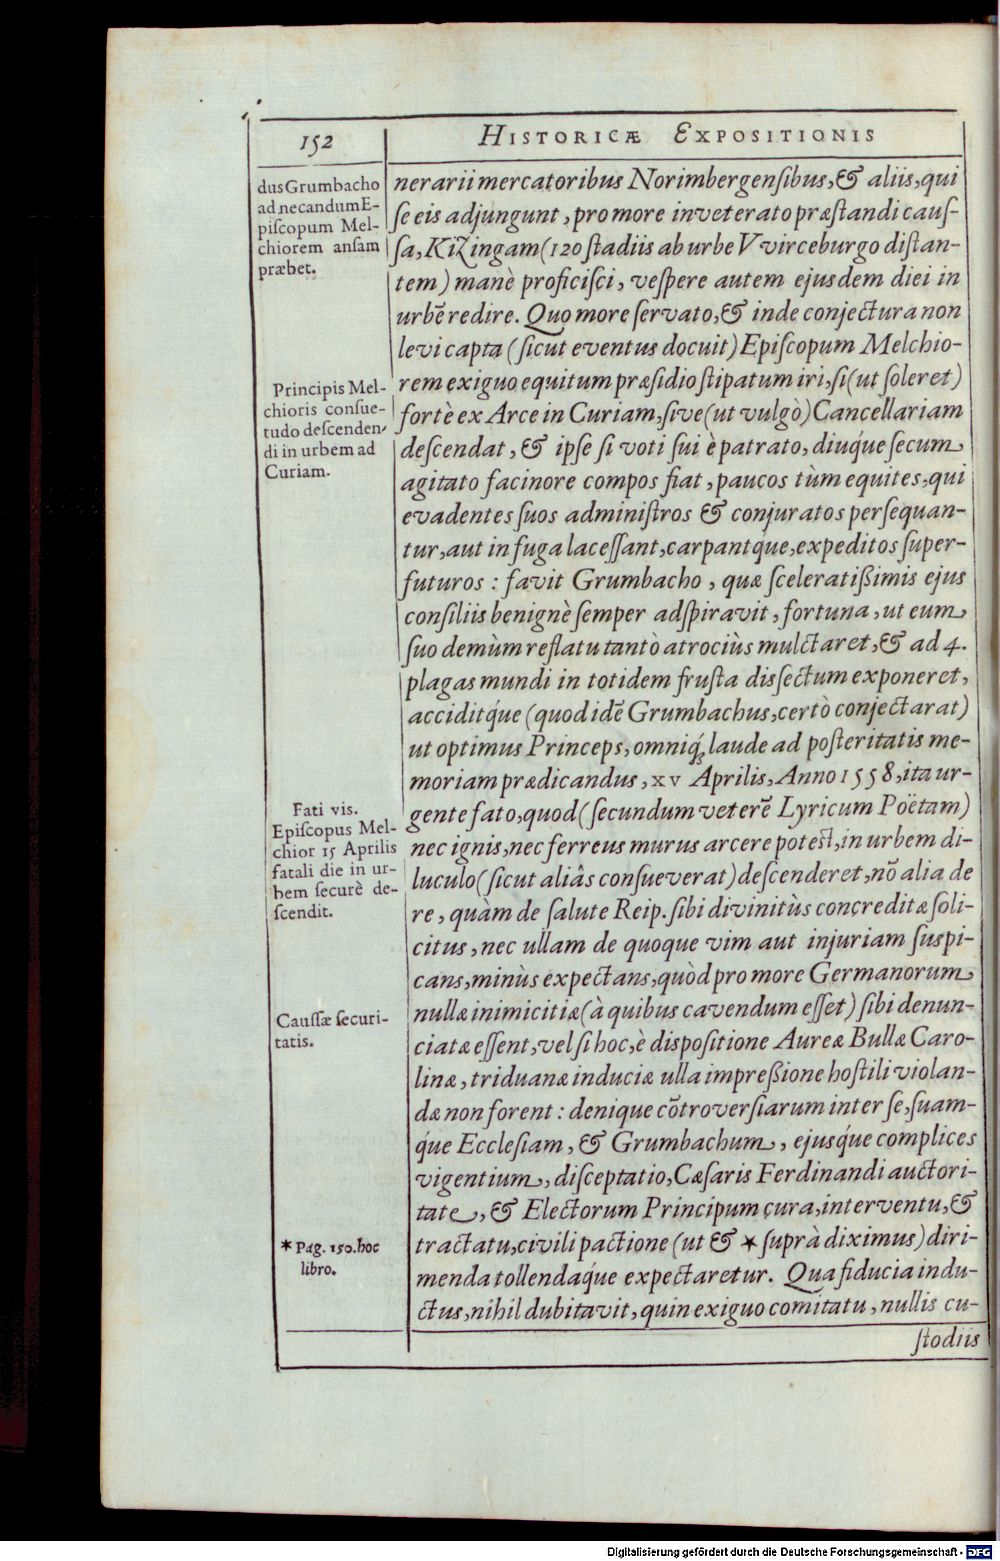 152
HISTORICÆ EXPOSITIONIS
dus Grumbacho
ad necandum E-
piſcopum Mel-
chiorem anſam
præbet.
Principis Mel-
chioris conſue-
tudo deſcenden-
di in urbem ad
Curiam.
Fati vis.
Epiſcopus Mel-
chior 15 Aprilis
fatali die in ur-
bem ſecurè de-
ſcendit.
Cauſſæ ſecuri-
tatis.
* Pag. 150. hoc
libro.
nerarii mercatoribus Norimbergenſibus, & aliis, qui
ſe eis adjungunt, pro more inveterato præſtandi cauſ-
ſa, Kitzingam (120 ſtadiis ab urbe VVirceburgo diſtan-
tem) manè proficiſci, veſpere autem ejusdem diei in
urbē redire. Quo more ſervato, & inde conjectura non
levi capta (ſicut eventus docuit) Epiſcopum Melchio-
rem exiguo equitum præſidio ſtipatum iri, ſi (ut ſoleret)
fortè ex Arce in Curiam, ſive (ut vulgò) Cancellariam
deſcendat, & ipſe ſi voti ſui è patrato, diuq́ue ſecum
agitato facinore compos fiat, paucos tùm equites, qui
evadentes ſuos adminiſtros & conjuratos perſequan-
tur, aut in fuga laceſſant, carpantq́ue, expeditos ſuper-
futuros: favit Grumbacho, quæ ſceleratißimis ejus
conſiliis benignè ſemper adſpiravit, fortuna, ut eum
ſuo demùm reflatu tantò atrociùs mulctaret, & ad 4.
plagas mundi in totidem fruſta diſſectum exponeret,
acciditq́ue (quod idē Grumbachus, certò conjectarat)
ut optimus Princeps, omniq́; laude ad poſteritatis me-
moriam prædicandus, XV Aprilis, Anno 1558, ita ur-
gente fato, quod (ſecundum veterē Lyricum Poëtam)
nec ignis, nec ferreus murus arcere poteſt, in urbem di-
luculo (ſicut aliâs conſueverat) deſcenderet, nō alia de
re, quàm de ſalute Reip. ſibi divinitùs concreditæ ſoli-
citus, nec ullam de quoque vim aut injuriam ſuſpi-
cans, minùs expectans, quòd pro more Germanorum
nullæ inimicitiæ (à quibus cavendum eſſet) ſibi denun-
ciatæ eſſent, vel ſi hoc, è dispoſitione Aureæ Bullæ Caro-
linæ, triduanæ induciæ ulla impreßione hoſtili violan-
dæ non forent: denique cōtroverſiarum inter ſe, ſuam-
q́ue Eccleſiam, & Grumbachum, ejusq́ue complices
vigentium, diſceptatio, Cæſaris Ferdinandi auctori-
tate, & Electorum Principum cura, interventu, &
tractatu, civili pactione (ut & * ſuprà diximus) diri-
menda tollendaq́ue expectaretur. Qua fiducia indu-
ctus, nihil dubitavit, quin exiguo comitatu, nullis cu-
ſtodiis
Digitalisierung gefördert durch die Deutsche Forschungsgemeinschaft - DFG